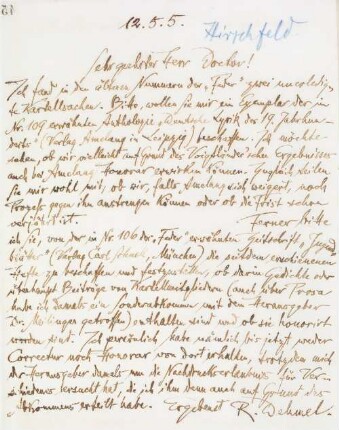 12.5.5.
Hirschfeld
Sehr geehrter Herr Doctor!
Ich fand in den Nummern der „Feder" zwei unerledig-
te Kartellsachen. Bitte, wollen Sie mir ein Exemplar der in
Nr. 109 erwähnten Anthologie „Deutsche Lyrik des 19. Jahrhun-
derts" (Verlag Amelang in Leipzig) beschaffen. Ich möchte
sehen, ob wir vielleicht auf Grund des Voigtländer'schen Ergebnisses
auch bei Amelang Honorar erwirken können. Zugleich teilen
Sie mir wohl mit, ob wir, falls Amelang sich weigert, noch
Prozeß gegen ihn anstrengen können oder ob die Frist schon
verjährt ist.
Ferner bitte
ich Sie, von der in Nr. 106 der „Feder" erwähnten Zeitschrift „Jugend
blätter" (Verlag Carl Schnell, München) die seitdem erschienenen
Hefte zu beschaffen und festzustellen, ob darin Gedichte oder
überhaupt Beiträge von Kartellmitgliedern (auch über Prosa
habe ich damals ein Sonderabkommen mit dem Herausgeber
Dr. getroffen) enthalten sind und ob sie honorirt
worden sind. Ich persönlich habe nämlich bis jetzt weder
Correctur noch Honorar von dort erhalten, trotzdem mich
der Herausgeber damals um die Nachdruckserlaubnis für Ver-
schiedenes ersucht hat, die ich ihm denn auch auf Grund des
Abkommens erteilt habe. Ergebenst R. Dehmel.